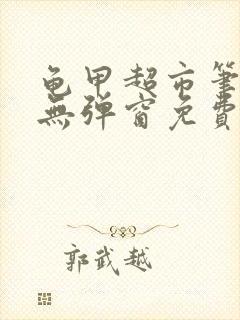 龟甲超市筆
無彈窗免費
郭武越